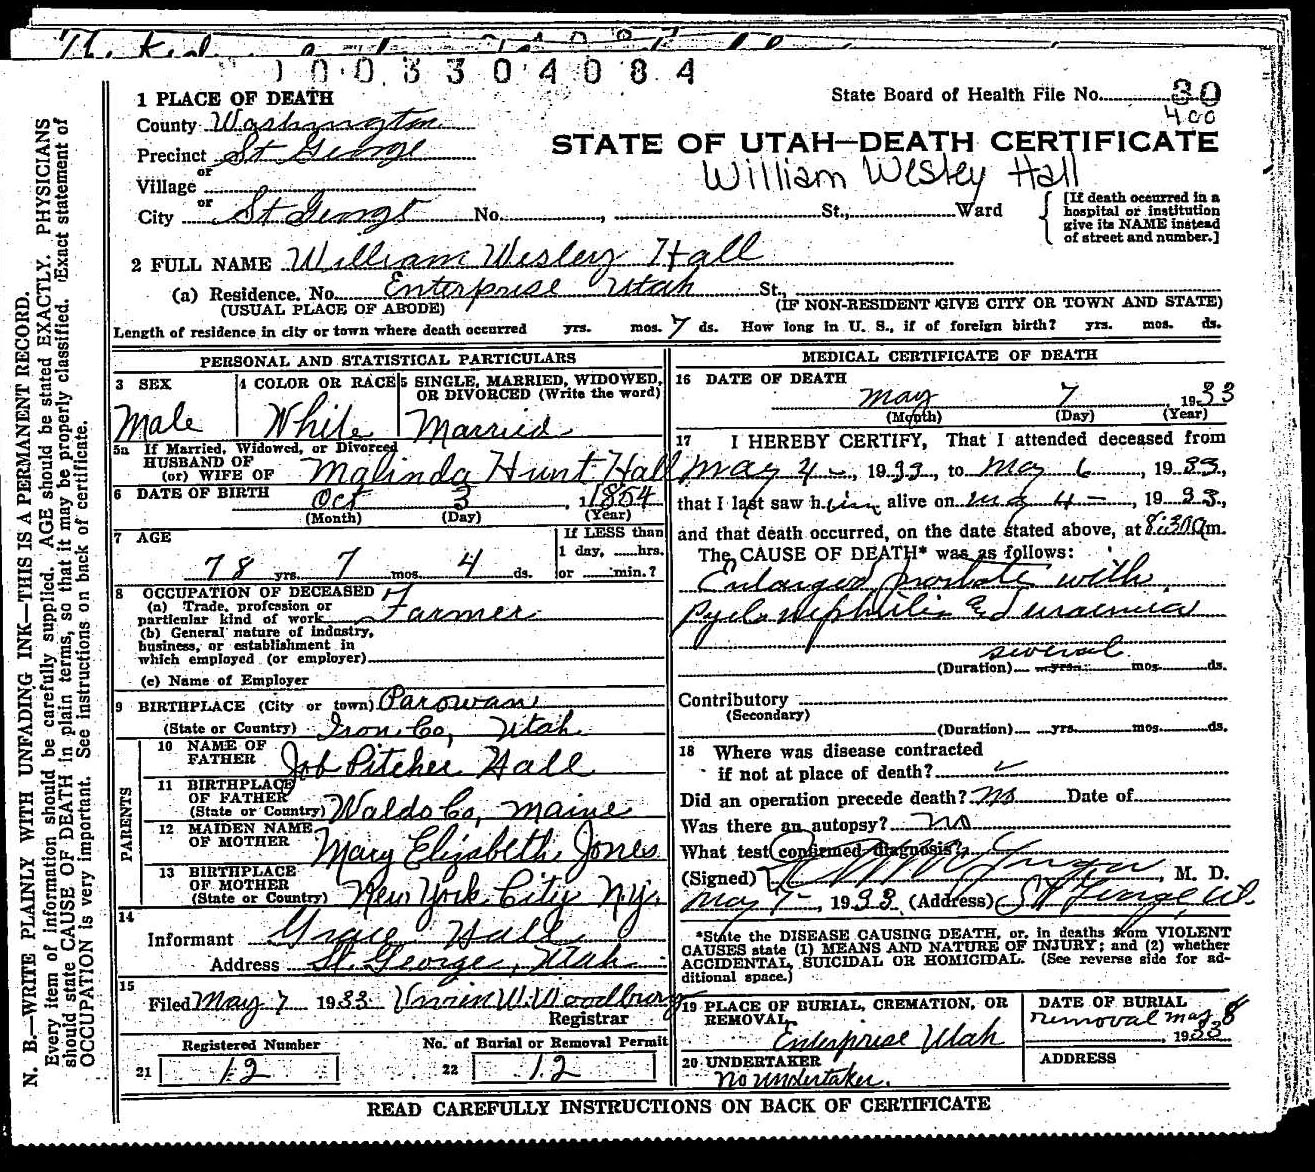 1003304084
1 PLACE OF DEATH
State Board of Health File No. 80
400
County Washington
STATE OF UTAH—DEATH CERTIFICATE
Precinct St George
William Wesley Hall
or
Village
or
City St George No. , St., Ward
[If death occurred in a
hospital or institution
give its NAME instead
of street and number.]
2 FULL NAME William Wesley Hall
(a) Residence. No. Enterprise Utah St.,
(USUAL PLACE OF ABODE) (IF NON-RESIDENT GIVE CITY OR TOWN AND STATE)
Length of residence in city or town where death occurred yrs. mos. 7 ds. How long in U. S., if of foreign birth? yrs. mos. ds.
PERSONAL AND STATISTICAL PARTICULARS
3 SEX
Male
4 COLOR OR RACE
White
5 SINGLE, MARRIED, WIDOWED,
OR DIVORCED (Write the word)
Married
5a If Married, Widowed, or Divorced
HUSBAND OF
(or) WIFE OF Malinda Hunt Hall
6 DATE OF BIRTH Oct 3, 1854
(Month) (Day) (Year)
7 AGE
78 yrs. 7 mos. 4 ds.
If LESS than
1 day, ......hrs.
or ......min.?
8 OCCUPATION OF DECEASED
(a) Trade, profession or
particular kind of work Farmer
(b) General nature of industry,
business, or establishment in
which employed (or employer)
(c) Name of Employer
9 BIRTHPLACE (City or town) Parowan
(State or Country) Iron Co, Utah
PARENTS
10 NAME OF
FATHER Job Pitcher Hall
11 BIRTHPLACE
OF FATHER
(State or Country) Waldo Co, Maine
12 MAIDEN NAME
OF MOTHER Mary Elizabeth Jones
13 BIRTHPLACE
OF MOTHER
(State or Country) New York City N.y.
14
Informant Grace Hall
Address St. George, Utah
15
Filed May 7 1933 Vivien W. Woodbury
Registrar
Registered Number
21 12
No. of Burial or Removal Permit
22 12
MEDICAL CERTIFICATE OF DEATH
16 DATE OF DEATH
May 7, 1933
(Month) (Day) (Year)
17 I HEREBY CERTIFY, That I attended deceased from
May 4, 1933, to May 6, 1933,
that I last saw him alive on May 4, 1933,
and that death occurred, on the date stated above, at 8:30 a m.
The CAUSE OF DEATH* was as follows:
Enlarged prostate with
Pyelonephritis & uraemia
several
(Duration) yrs. mos. ds.
Contributory
(Secondary)
(Duration) yrs. mos. ds.
18 Where was disease contracted
if not at place of death?
Did an operation precede death? No Date of
Was there an autopsy? No
What test confirmed diagnosis?
(Signed) , M. D.
May 7, 1933 (Address) St George, Ut.
*State the DISEASE CAUSING DEATH, or, in deaths from VIOLENT
CAUSES state (1) MEANS AND NATURE OF INJURY; and (2) whether
ACCIDENTAL, SUICIDAL OR HOMICIDAL. (See reverse side for ad-
ditional space.)
19 PLACE OF BURIAL, CREMATION, OR
REMOVAL
Enterprise Utah
DATE OF BURIAL
removal May 8
1933
20 UNDERTAKER
No undertaker.
ADDRESS
READ CAREFULLY INSTRUCTIONS ON BACK OF CERTIFICATE
N. B.—WRITE PLAINLY WITH UNFADING INK—THIS IS A PERMANENT RECORD.
Every item of information should be carefully supplied. AGE should be stated EXACTLY. PHYSICIANS
should state CAUSE OF DEATH in plain terms, so that it may be properly classified. Exact statement of
OCCUPATION is very important. See instructions on back of certificate.